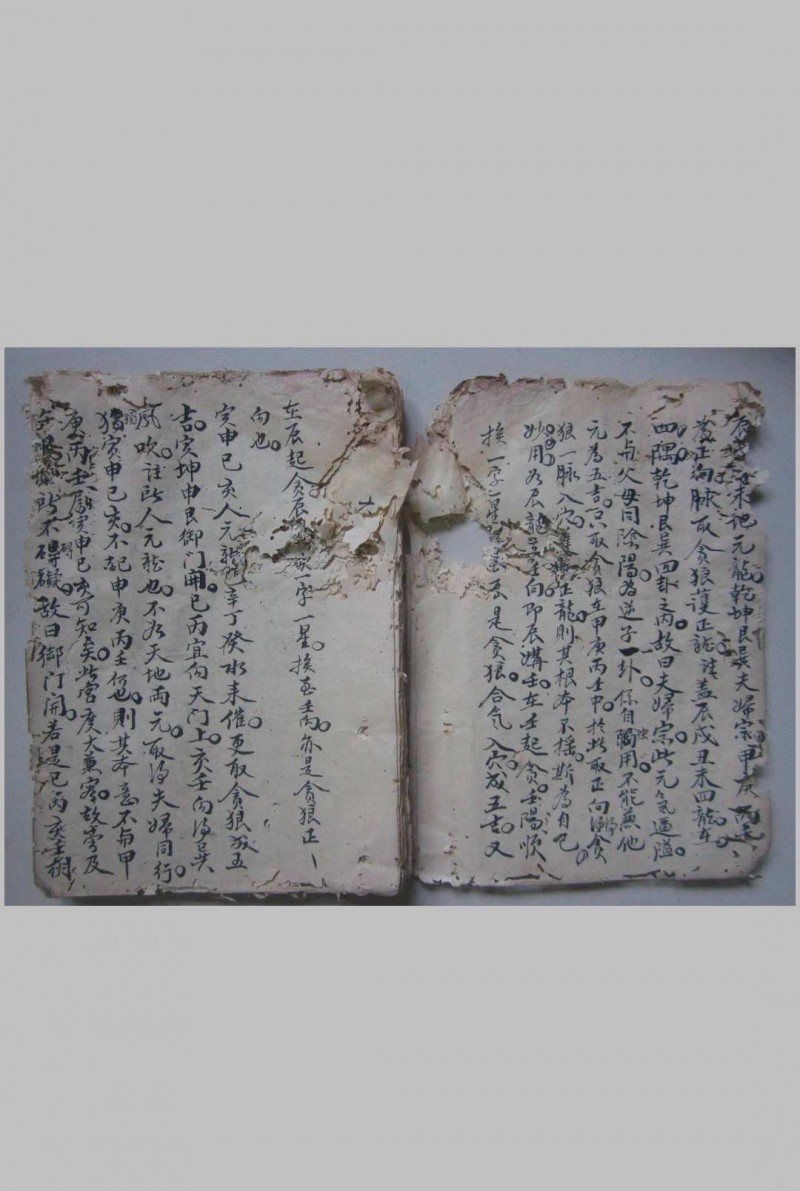 辰戌丑未地元龍乾坤艮巽夫婦宗甲庚丙壬
為正向脉取貪狼護正龍註蓋辰戌丑未四龍在
四隅乾坤艮巽四卦之內故曰夫婦宗此元氣逼隘
不與父母同陰陽為逆子一卦係自獨用不能兼他
元為五吉只取貪狼在甲庚丙壬中於此取正向得貪
狼一脉入穴護正龍則其根本不搖斯為自己
妙用如辰龍壬向即辰溝壬在壬起貪壬陽順
挨一字一星是貪狼合氣入穴成五吉又
在辰起貪辰一字一星挨至壬亦是貪狼正
向也
寅申巳亥人元龍乙辛丁癸水來催更取貪狼成五
吉寅坤申艮御門開巳丙宜向天門上亥壬向得巽
風吹註此人元龍也不如天地兩元取得夫婦同行
獨寅申巳亥不起申庚丙壬何也則其本意不與甲
庚丙壬為寅申巳亥可知矣此宮度大兼容故旁及
所不礙故曰御門開若是巳丙亥壬朝